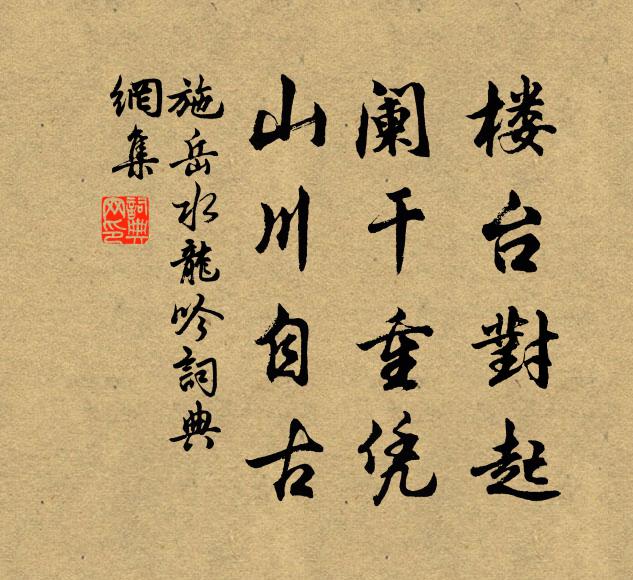 楼台對起
阑干重凭
山川自古
施岳水龍吟詞典
網集
詞典
网印